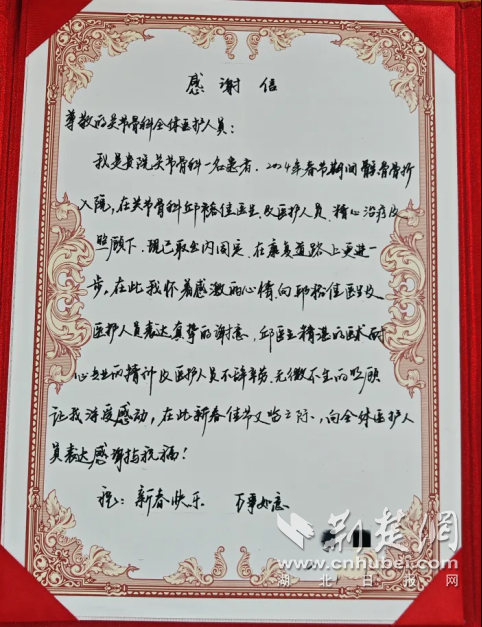 感谢信
尊敬的关节骨科全体医护人员:
我是贵院关节骨科一名患者.2024年春节期间髌骨骨折
入院,在关节骨科邱裕佳医生及医护人员.精心治疗及
照顾下.现已取出内固定.在康复道路上更进一
步,在此我怀着感激的心情.向邱裕佳医生及
医护人员表达真挚的谢意.邱医生精湛的医术耐
心专业的精神及医护人员不辞辛劳.无微不至的照顾
让我深受感动,在此新春佳节又临之际.,向全体医护人
员表达感谢与祝福!
祝:新春快乐 万事如意
荆楚网
www.cnhubei.com
湖北日报网